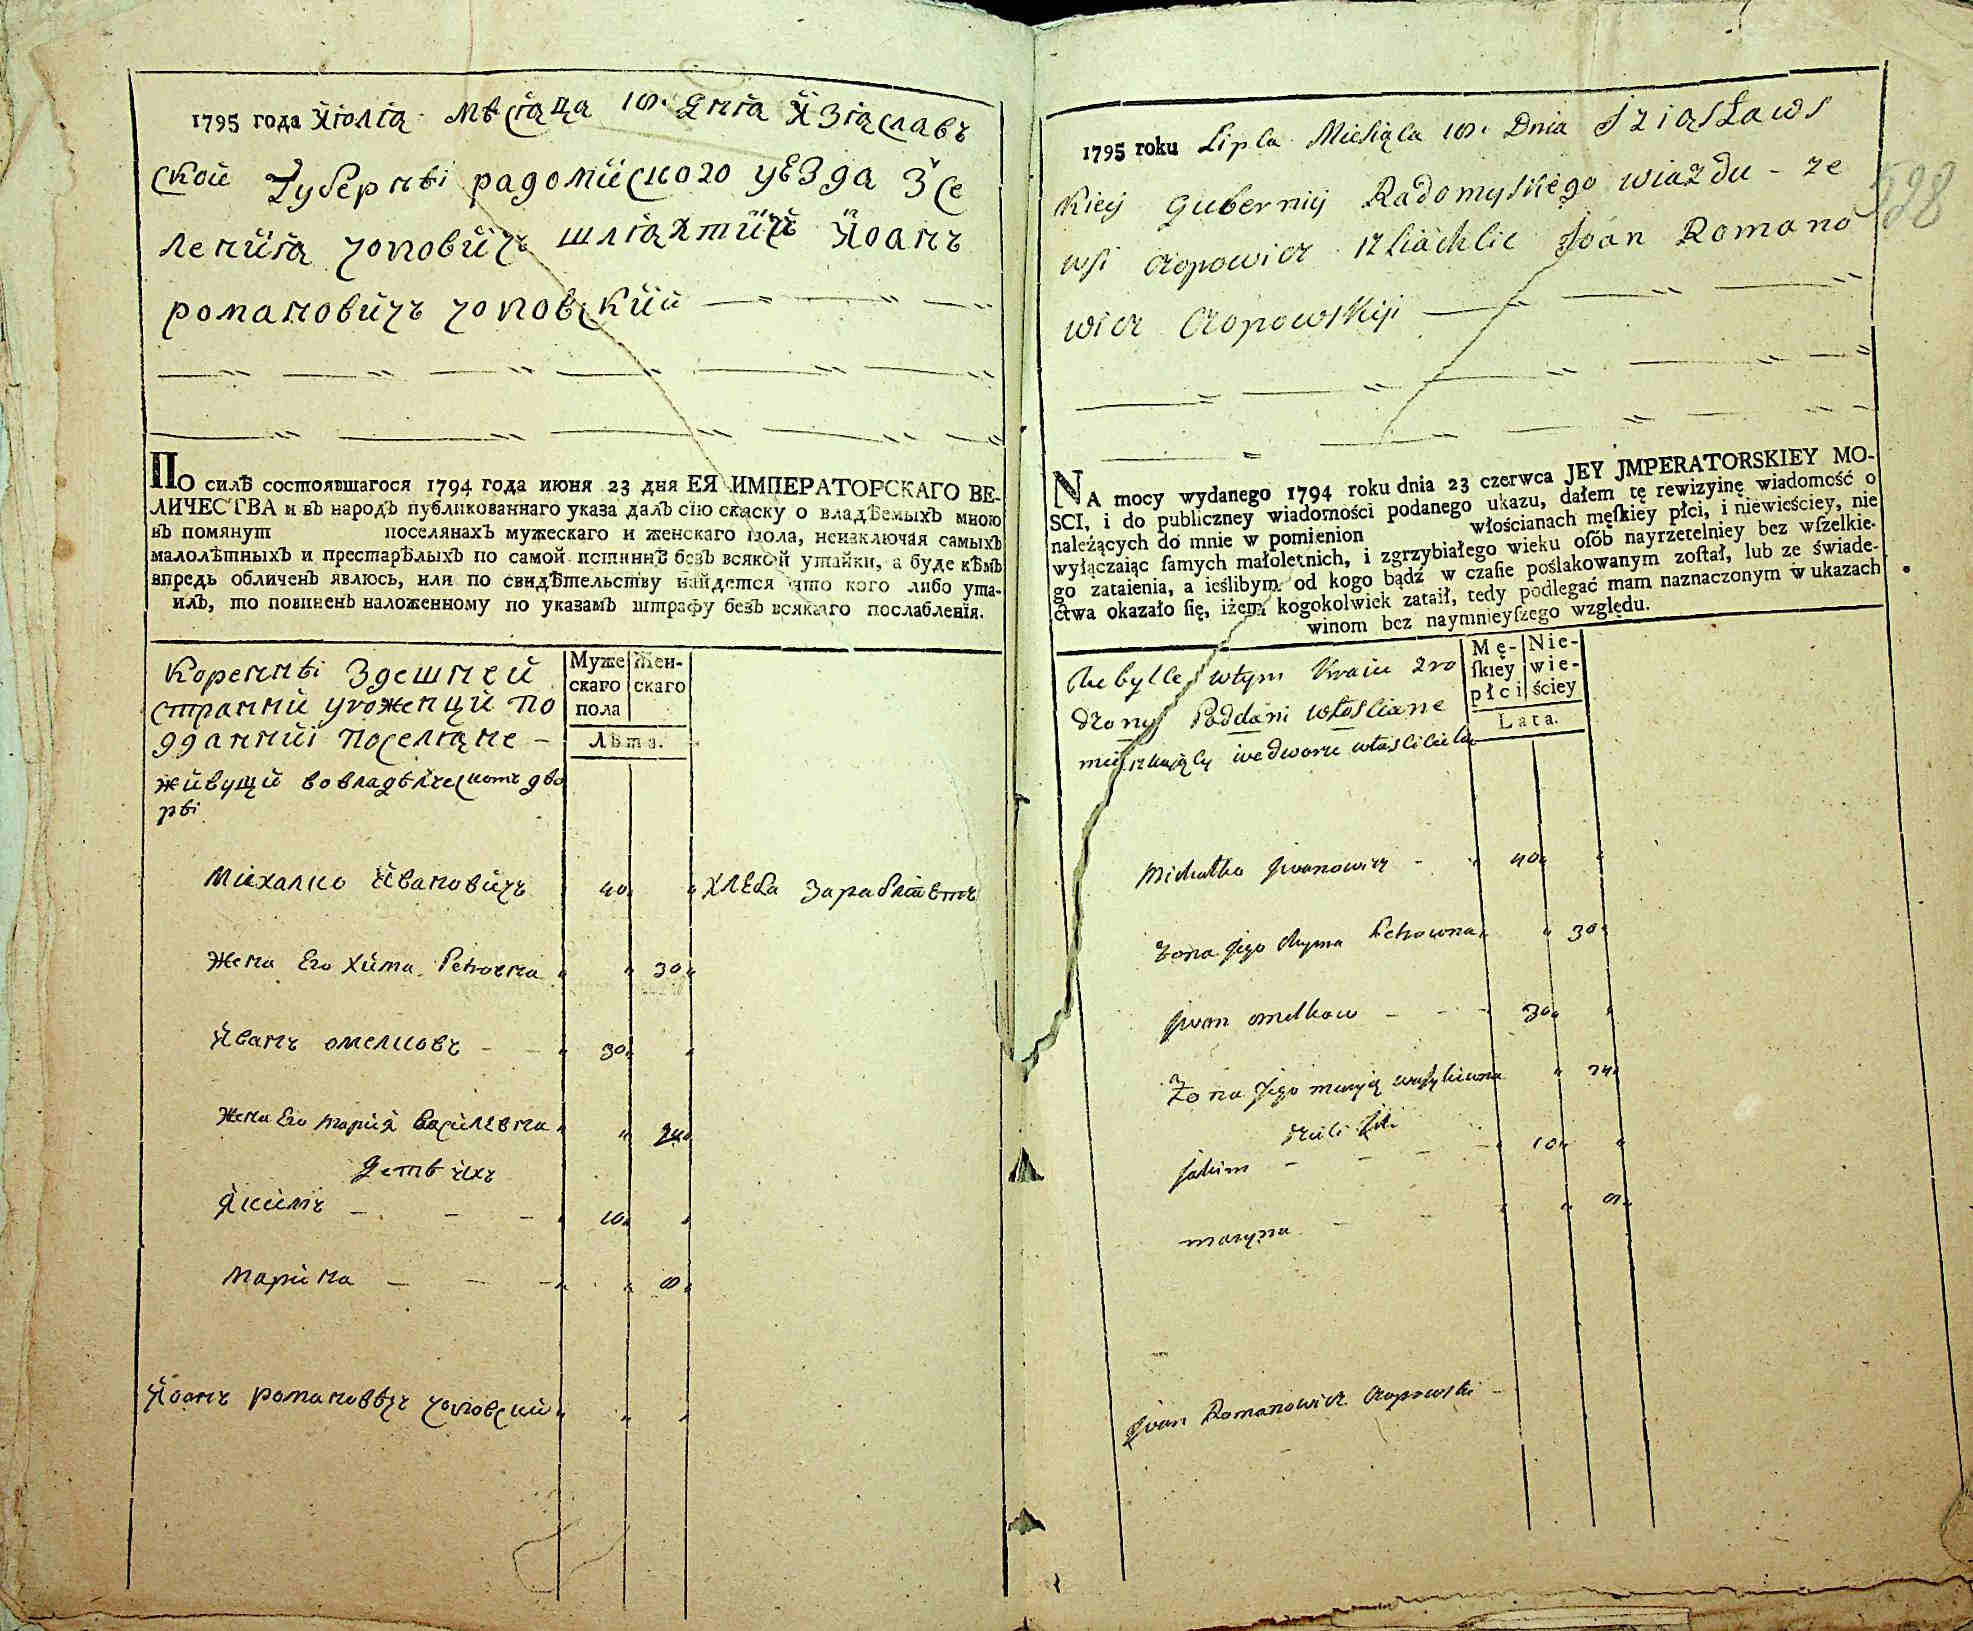 1795 года Йюлія мѣсяца 10. Дня Йзяславъ
ской Губернѣі радомйского уѣзда Зсе
ленйя Чоповйчъ шляхтйчъ Йоанъ
романовйчъ Чоповскйй
По силѣ состоявшагося 1794 года июня 23 дня ЕЯ ИМПЕРАТОРСКАГО ВЕ-
ЛИЧЕСТВА и въ народъ публикованнаго указа далъ сію скаску о владѣемыхъ мною
въ помянут поселянахъ мужескаго и женскаго пола, неизключая самыхъ
малолѣтныхъ и престарѣлыхъ по самой истиннѣ безъ всякой утайки, а буде кѣмъ
впредь обличенъ явлюсь, или по свидѣтельству найдется что кого либо ута-
илъ, то повиненъ наложенному по указамъ штрафу безъ всякаго послабленія.
Муже Жен-
скаго скаго
пола
Лѣта.
Кореннѣі Здешней
странни уроженцй По
дданнйі Поселяне –
жйвущй во владѣлческомъ дво
рѣі
Михалко Йвановйчъ 40 хлеба заработъ
Жена Его Хйма Petровна 30
Йванъ омелковъ – – 30
Жена Его Марйя Васйлевна 24
Детѣ йхъ
Якймъ – – – 10
Марйна – – – 8
Йоанъ романовѣчъ Чоповскйй
1795 roku Lipca Miesiąca 10. Dnia Jziasławs
kiey Gubernij Radomyskiego wiazdu – ze
wsi Czopowicz szliachcic Joan Romano
wicz Czopowskiji
528
NA mocy wydanego 1794 roku dnia 23 czerwca JEY JMPERATORSKIEY MO-
SCI, i do publiczney wiadomości podanego ukazu, dałem tę rewizyinę wiadomość o
należących do mnie w pomienion włościanach męſkiey płci, i niewieściey, nie
wyłączaiąc ſamych małoletnich, i zgrzybiałego wieku oſób nayrzetelniey bez wſzelkie-
go zataienia, a ieślibym od kogo bądź w czaſie poślakowanym zoſtał, lub ze świade-
ctwa okazało ſię, iżem kogokolwiek zataił, tedy podlegać mam naznaczonym w ukazach
winom bez naymnieyſzego względu.
Mę- Nie-
ſkiey wie-
płci ściey
Lata.
wtym Kraiu zro
dzony Poddani włosciane
mieszkaiący we dworu własciciela
Michałko Jwanowicz – 40
Zona Jego Chyma Petrowna 30
Jwan omelkow – – – 30
Zona Jego maryia wasylewna 24
dzieci Jch
Jakim – – – – 10
maryna – – 8
Jvan Romanowicz Czopowski –